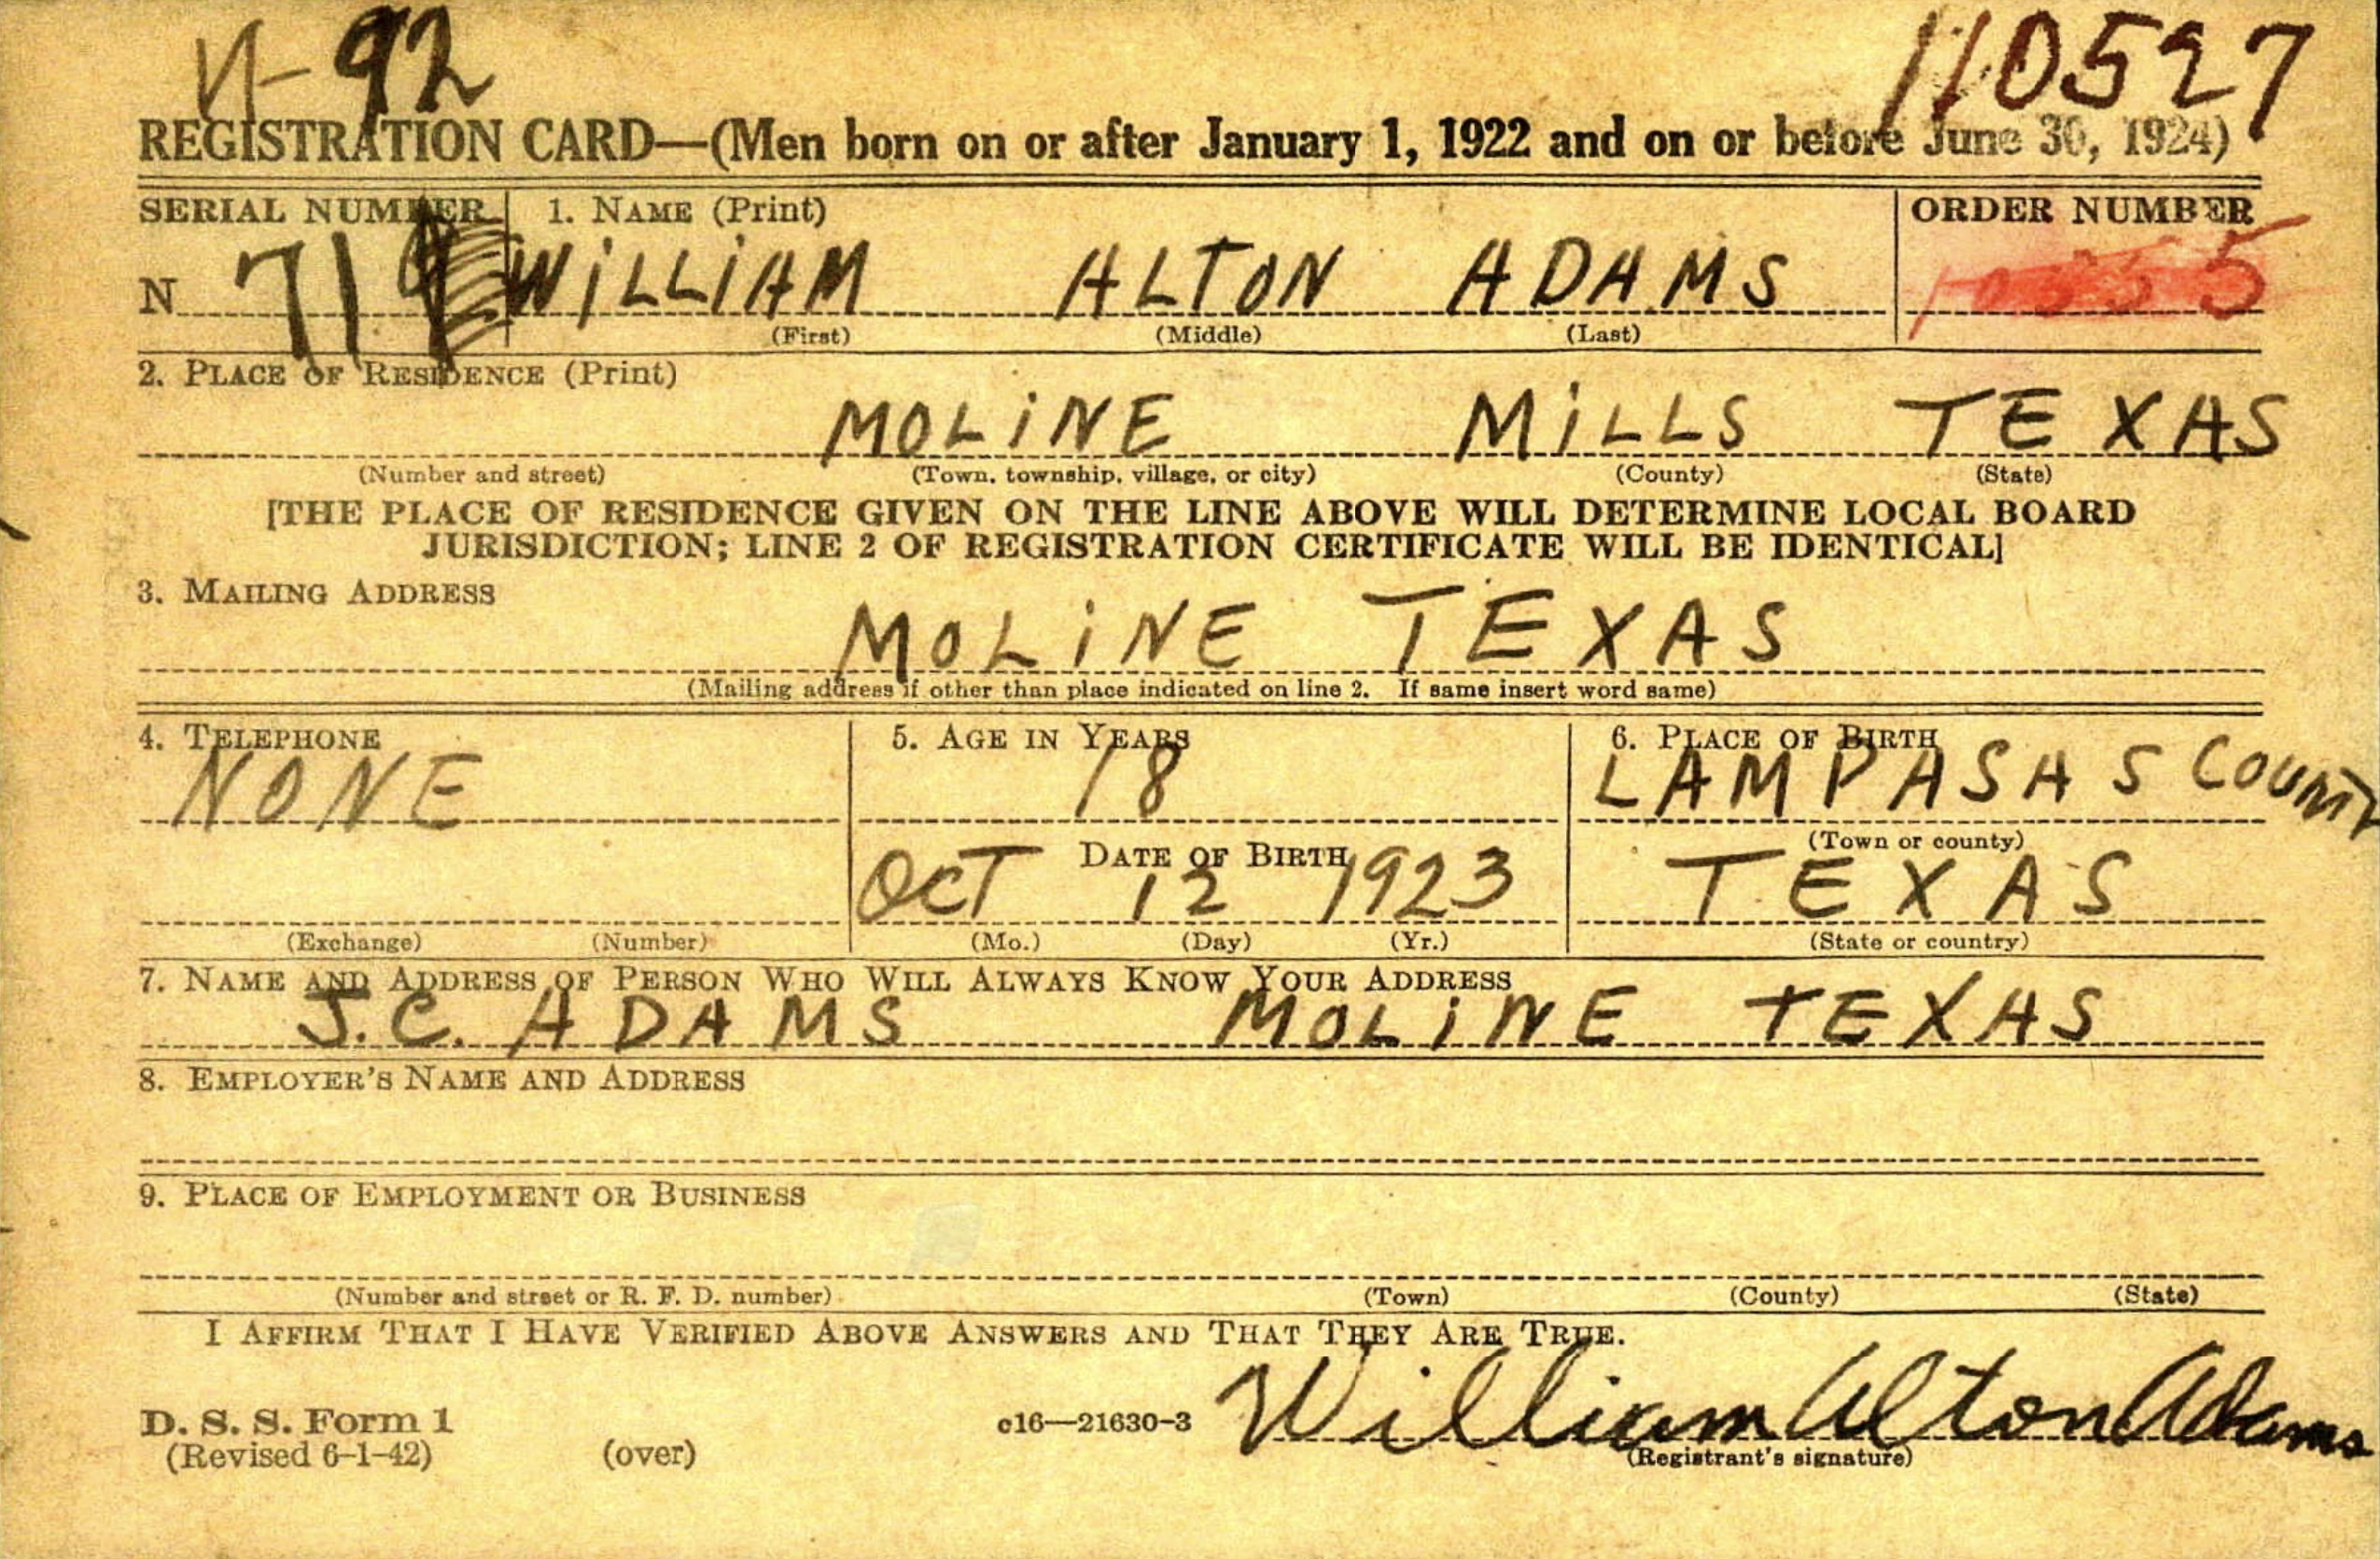 N-92
110527
REGISTRATION CARD—(Men born on or after January 1, 1922 and on or before June 30, 1924)
SERIAL NUMBER 1. NAME (Print) ORDER NUMBER
N 719 WiLLiAM ALTON ADAMS
(First) (Middle) (Last)
2. PLACE OF RESIDENCE (Print)
MOLiNE MiLLS TEXAS
(Number and street) (Town, township, village, or city) (County) (State)
[THE PLACE OF RESIDENCE GIVEN ON THE LINE ABOVE WILL DETERMINE LOCAL BOARD
JURISDICTION; LINE 2 OF REGISTRATION CERTIFICATE WILL BE IDENTICAL]
3. MAILING ADDRESS
MOLiNE TEXAS
(Mailing address if other than place indicated on line 2. If same insert word same)
4. TELEPHONE 5. AGE IN YEARS 6. PLACE OF BIRTH
NONE 18 LAMPASAS COUNTY
(Town or county)
DATE OF BIRTH
OCT 12 1923 TEXAS
(Exchange) (Number) (Mo.) (Day) (Yr.) (State or country)
7. NAME AND ADDRESS OF PERSON WHO WILL ALWAYS KNOW YOUR ADDRESS
J.C. ADAMS MOLiNE TEXAS
8. EMPLOYER'S NAME AND ADDRESS
9. PLACE OF EMPLOYMENT OR BUSINESS
(Number and street or R. F. D. number) (Town) (County) (State)
I AFFIRM THAT I HAVE VERIFIED ABOVE ANSWERS AND THAT THEY ARE TRUE.
William Alton Adams
D. S. S. Form 1 c16—21630-3
(Revised 6-1-42) (over) (Registrant's signature)